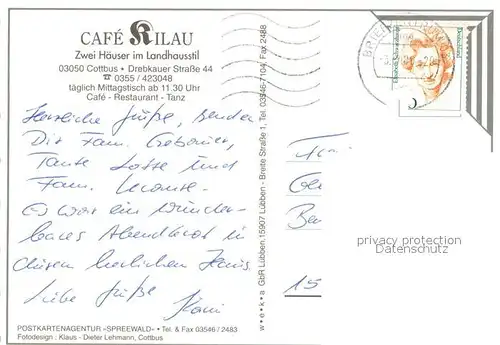 CAFÉ KILAU
Zwei Häuser im Landhausstil
03050 Cottbus • Drebkauer Straße 44
☎ 0355 / 423048
täglich Mittagstisch ab 11.30 Uhr
Café - Restaurant - Tanz
Herzliche Grüße, senden
Dir Fam.
Tante Lotte und
Fam.
Es war ein wunder-
bares Abendbrot in
diesem herrlichen Haus.
Liebe Grüße
POSTKARTENAGENTUR »SPREEWALD« • Tel. & Fax 03546 / 2483
Fotodesign : Klaus - Dieter Lehmann, Cottbus
w•e•k•a GbR Lübben, 15907 Lübben - Breite Straße 1, Tel. 03546-7104, Fax 2488
Deutschland
15
privacy protection
Datenschutz